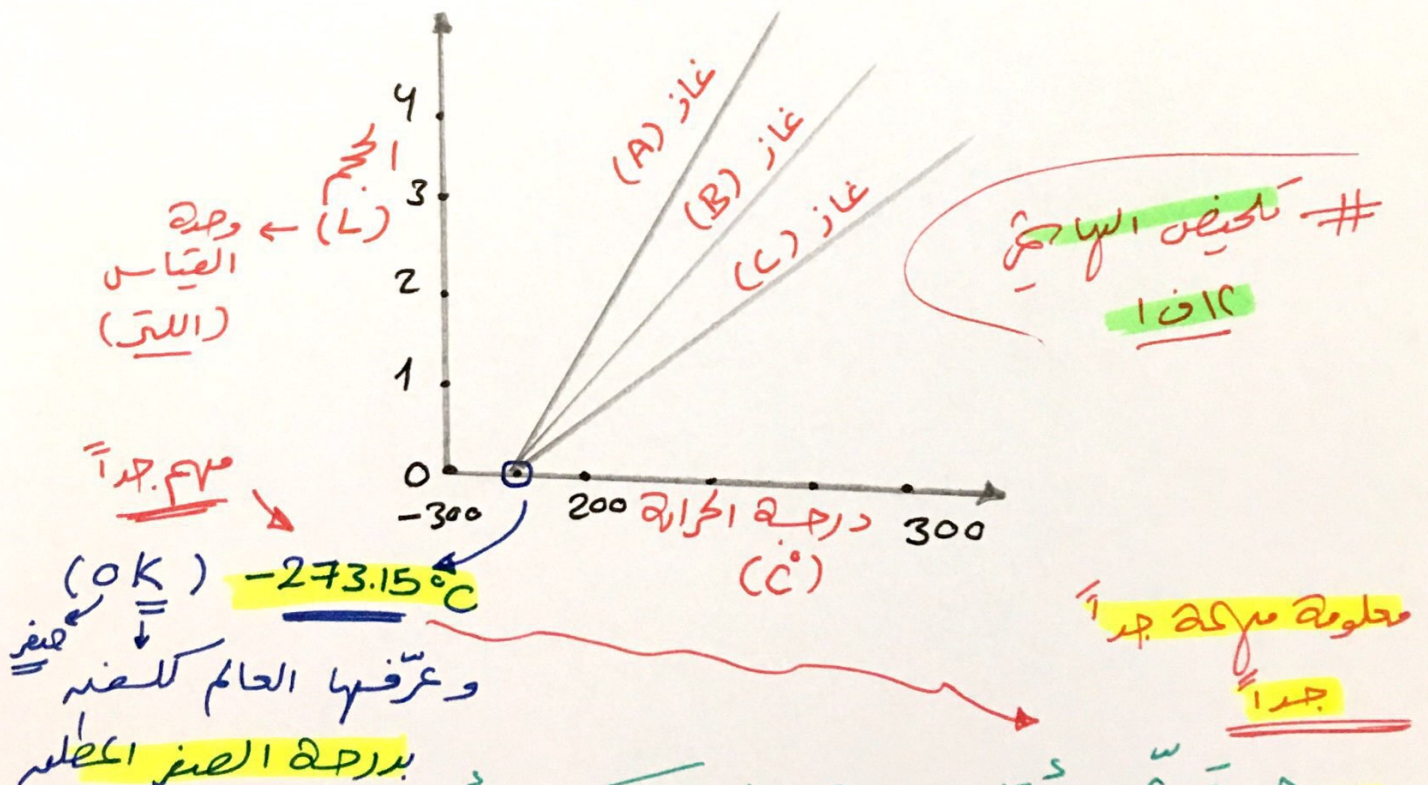 4
3
2
1
0
الحجم
(L) ← وحدة
القياس
(اللتر)
غاز (A)
غاز (B)
غاز (C)
# تلخيص
-300
200
درجة الحرارة
300
(C°)
مهم جداً
-273.15°C
(0K)
صفر
وعرّفها العالم كلفن
بدرجة الصفر المطلق
معلومة مهمة جداً
جداً